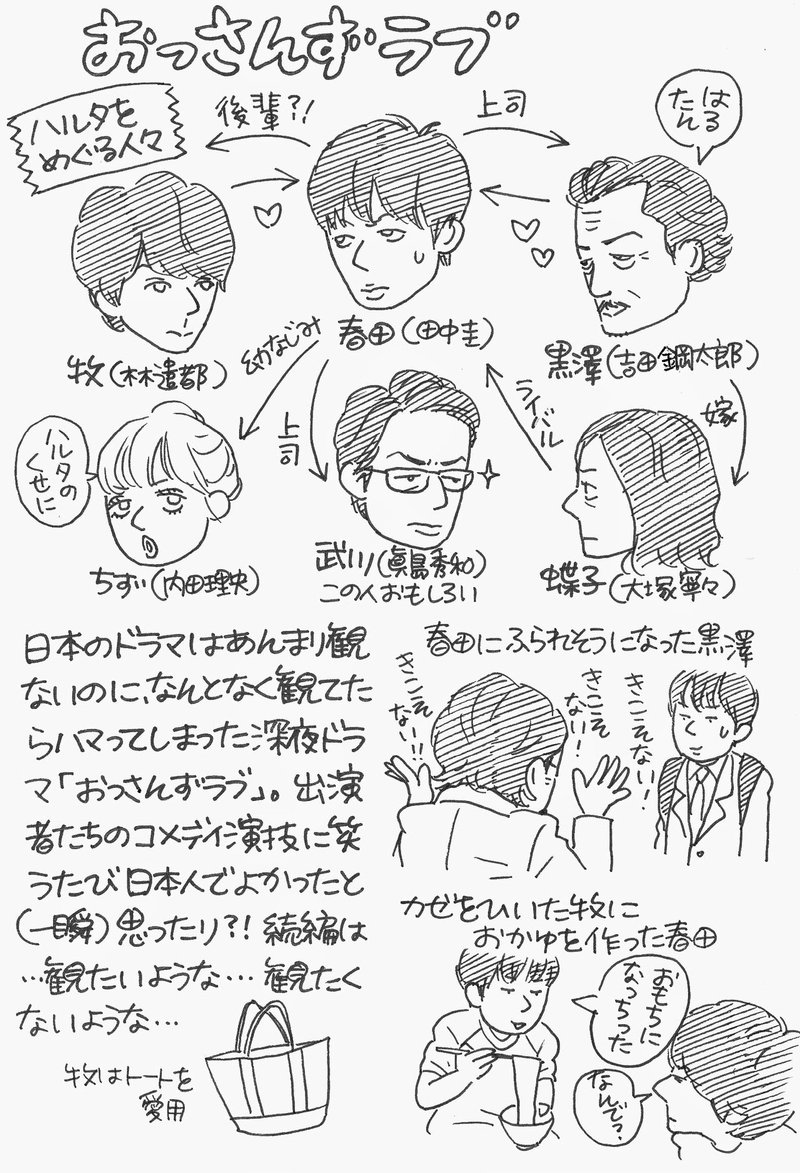 おっさんずラブ
ハルタを
めぐる人々
後輩?!
上司
はる
たん
牧(林遣都)
幼なじみ
春田(田中圭)
黒澤(吉田鋼太郎)
ハルタの
くせに
上司
ライバル
嫁
ちず(内田理央)
武川(眞島秀和)
この人おもしろい
蝶子(大塚寧々)
日本のドラマはあんまり観
ないのに、なんとなく観てた
らハマってしまった深夜ドラ
マ「おっさんずラブ」。出演
者たちのコメディ演技に笑
うたび日本人でよかったと
(一瞬)思ったり?!続編は
…観たいような…観たく
ないような…
牧はトートを
愛用
春田にふられそうになった黒澤
きこえ
ない!!
きこえ
ない!
きこえない!
カゼをひいた牧に
おかゆを作った春田
おもちに
なっちった
なんで?